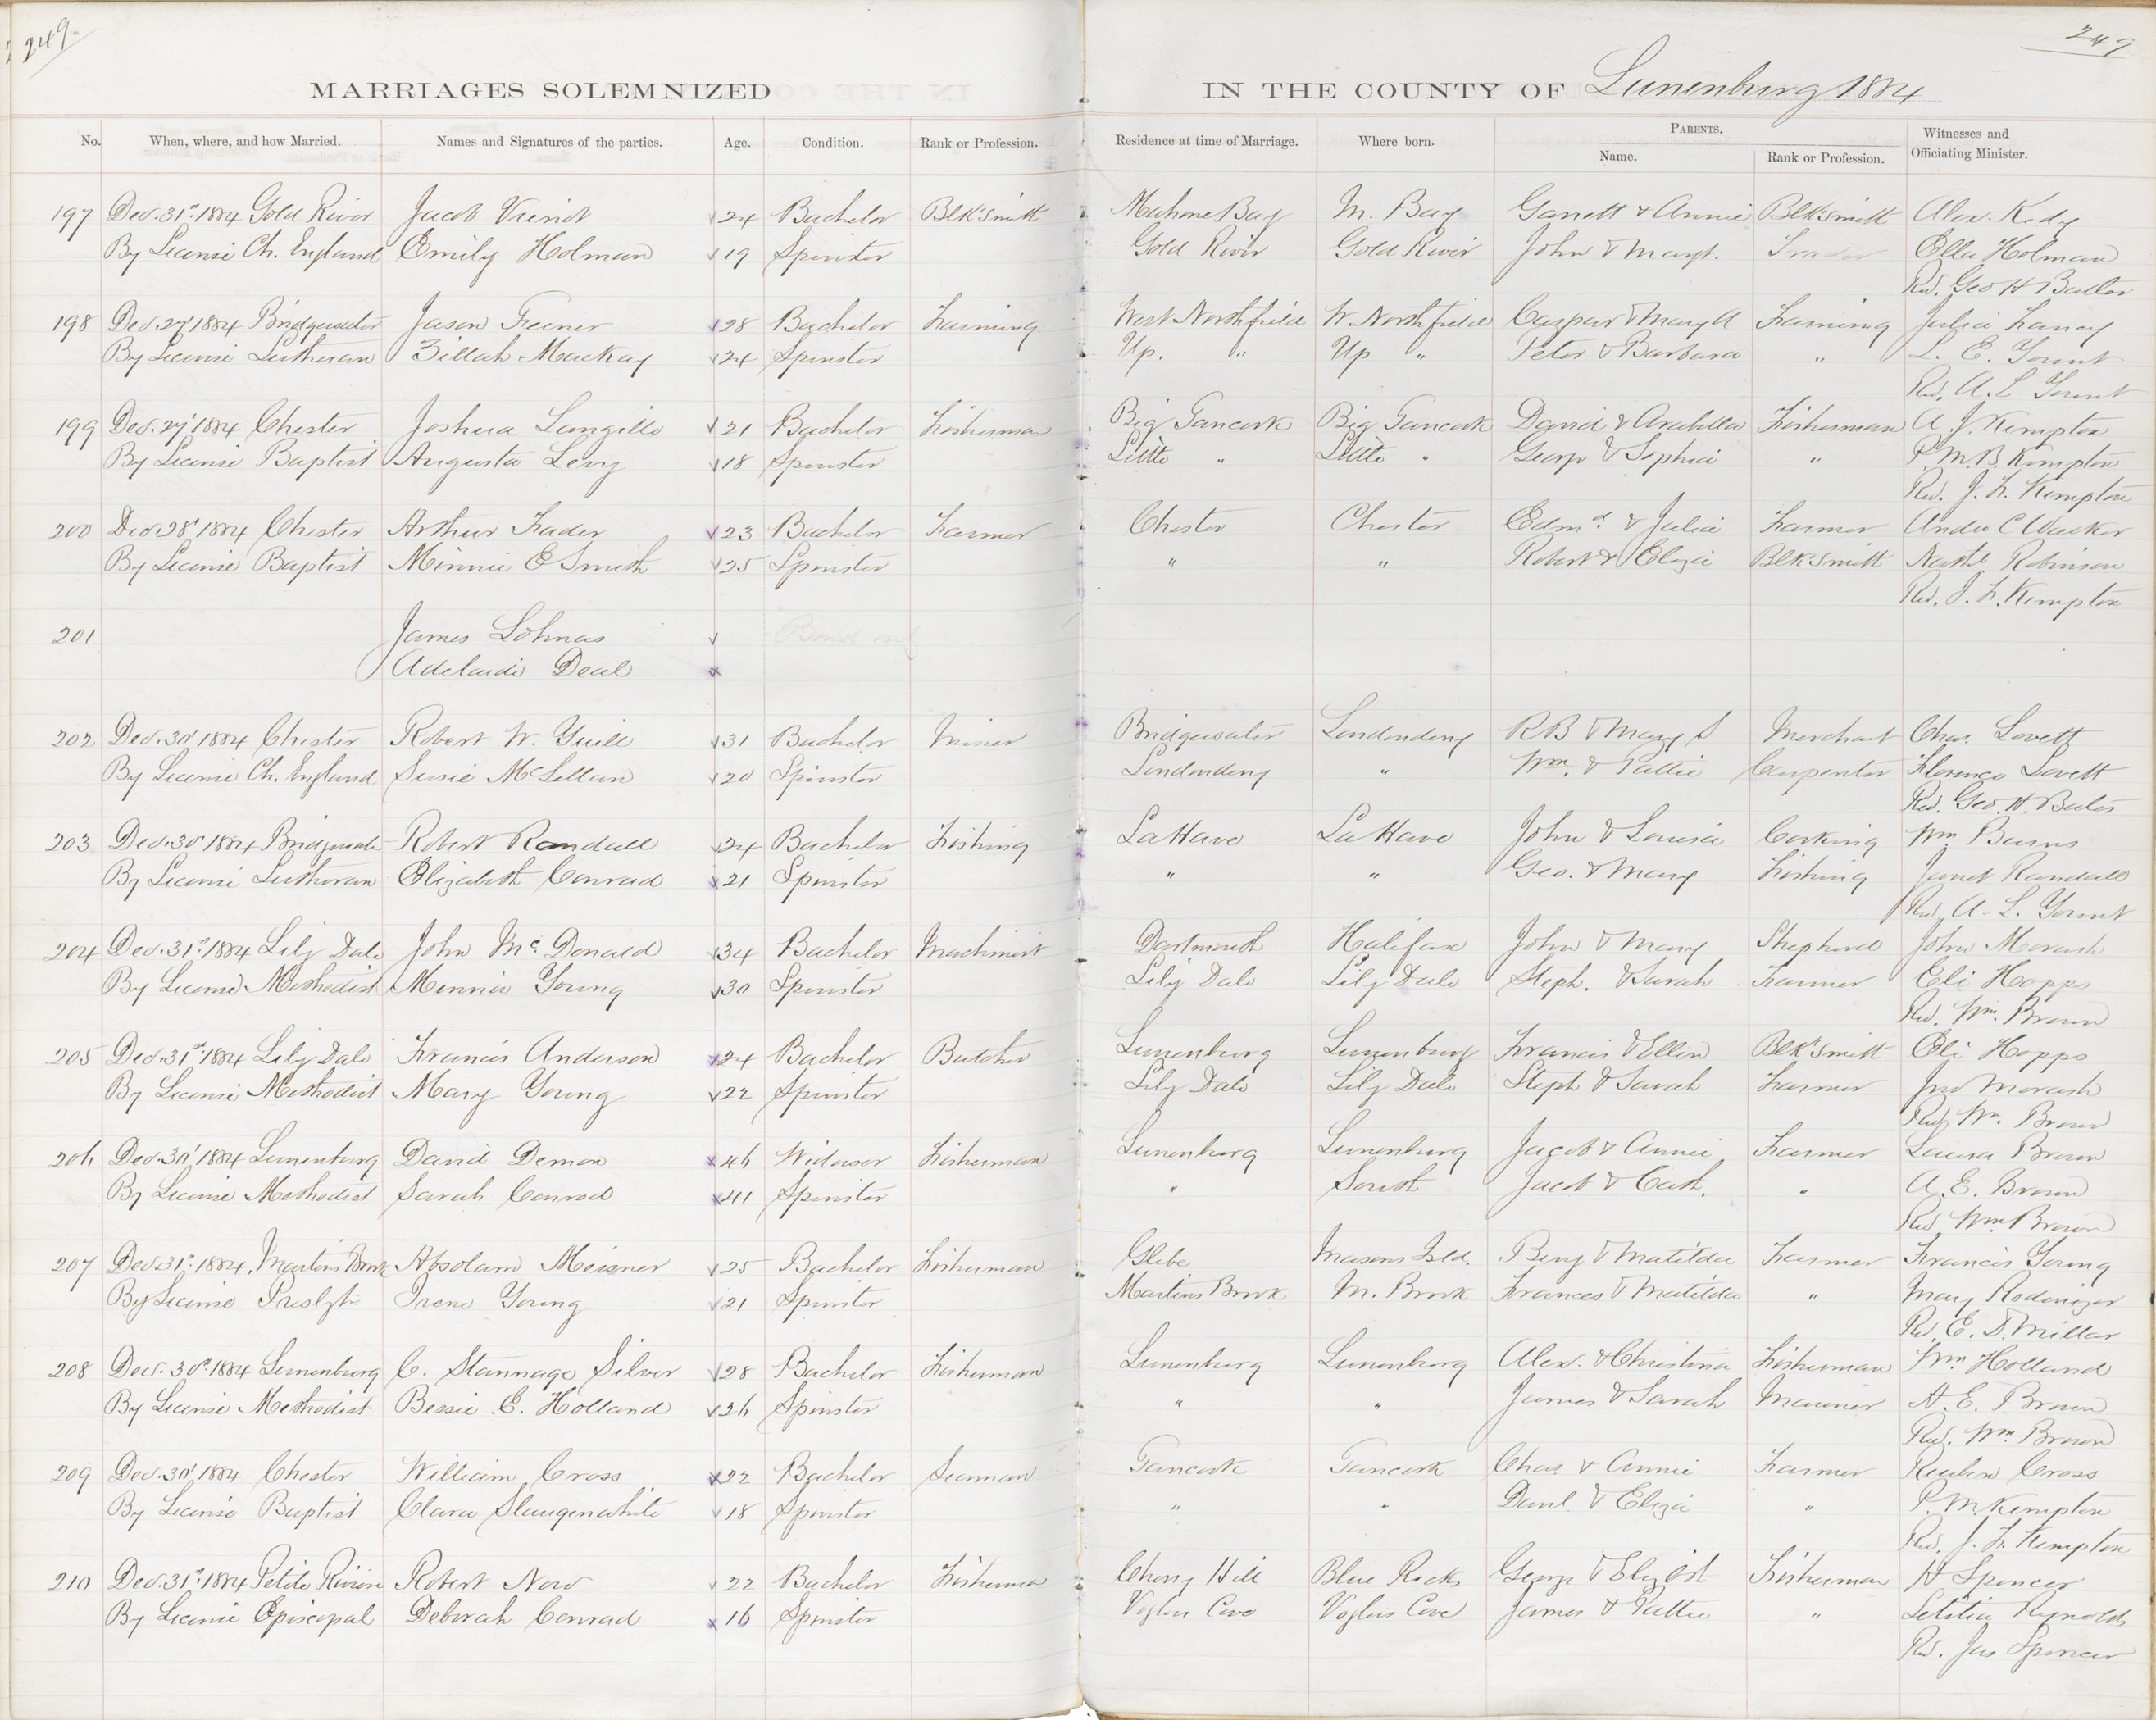 249
249
MARRIAGES SOLEMNIZED IN THE COUNTY OF Lunenburg 1884
No. When, where, and how Married. Names and Signatures of the parties. Age. Condition. Rank or Profession. Residence at time of Marriage. Where born. PARENTS. Name. Rank or Profession. Witnesses and Officiating Minister.
197 Dec. 31st 1884 Gold River Jacob 24 Bachelor Blksmith Mahone Bay M. Bay Garrett & Annie Blksmith Alex. Kedy
By License Ch. England Emily Holman 19 Spinster Gold River Gold River John & Margt. Trader Ella Holman
Rev. Geo H Butler
198 Dec 27 1884 Bridgewater Jason Feener 28 Bachelor Farming West Northfield W. Northfield Caspar & Mary A Farming Julia Fancy
By License Lutheran Zillah Mackay 24 Spinster Up. " Up " Peter & Barbara " L. E. Yount
Rev. A. L Yount
199 Dec. 27 1884 Chester Joshua Langille 21 Bachelor Fisherman Big Tancook Big Tancook David & Arabella Fisherman A. J. Kempton
By License Baptist Augusta Levy 18 Spinster Little " Little " George & Sophia " P. M. B. Kempton
Rev. J. F. Kempton
200 Dec. 28 1884 Chester Arthur Fader 23 Bachelor Farmer Chester Chester Edmd & Julia Farmer Andw C Walker
By License Baptist Minnie E Smith 25 Spinster " " Robert & Eliza Blksmith Nathl Robinson
Rev. J. F. Kempton
201 James Lohnas Bond only
Adelaide Deal
202 Dec. 30 1884 Chester Robert W. Yuill 31 Bachelor Miner Bridgewater Londonderry R B & Mary S Merchant Chas. Lovett
By License Ch. England Susie McLellan 20 Spinster Londonderry " Wm. & Pattie Carpenter Florence Lovett
Rev. Geo. H. Butler
203 Dec. 30 1884 Bridgewater Robert Randall 24 Bachelor Fishing LaHave LaHave John & Louisa Corking Wm Burns
By License Lutheran Elizabeth Conrad 21 Spinster " " Geo. & Mary Fishing Janet Randall
Rev. A. L. Yount
204 Dec. 31st 1884 Lily Dale John Mc Donald 34 Bachelor Machinist Dartmouth Halifax John & Mary Shepherd John Morash
By License Methodist Minnie Young 30 Spinster Lily Dale Lily Dale Steph. & Sarah Farmer Eli Hopps
Rev. Wm. Brown
205 Dec. 31st 1884 Lily Dale Francis Anderson 24 Bachelor Butcher Lunenburg Lunenburg Francis & Ellen Blksmith Eli Hopps
By License Methodist Mary Young 22 Spinster Lily Dale Lily Dale Steph & Sarah Farmer Jno Morash
Rev. Wm. Brown
206 Dec. 30 1884 Lunenburg David Demon 46 Widower Fisherman Lunenburg Lunenburg Jacob & Annie Farmer Laura Brown
By License Methodist Sarah Conrad 41 Spinster " South Jacob & Cath. " A. E. Brown
Rev Wm Brown
207 Dec. 31st 1884. Martins Brook Absolam Meisner 25 Bachelor Fisherman Glebe Masons Isld. Benj & Matilda Farmer Francis Young
By License Presbytn Irene Young 21 Spinster Martins Brook M. Brook Frances & Matilda " Mary Rodenizer
Rev. E. D. Millar
208 Dec. 30 1884 Lunenburg C. Stannage Silver 28 Bachelor Fisherman Lunenburg Lunenburg Alex. & Christina Fisherman Wm Holland
By License Methodist Bessie E. Holland 26 Spinster " " James & Sarah Mariner A. E. Brown
Rev. Wm Brown
209 Dec. 30 1884 Chester William Cross 22 Bachelor Seaman Tancook Tancook Chas & Annie Farmer Reuben Cross
By License Baptist Clara Slaugenwhite 18 Spinster " " Danl. & Eliza " P. M. Kempton
Rev. J. F. Kempton
210 Dec. 31st 1884 Petite Riviere Robert Now 22 Bachelor Fisherman Cherry Hill Blue Rocks George & Elizbt Fisherman H Spencer
By License Episcopal Deborah Conrad 16 Spinster Voglers Cove Voglers Cove James & Pattie " Letitia Reynolds
Rev. Jas Spencer